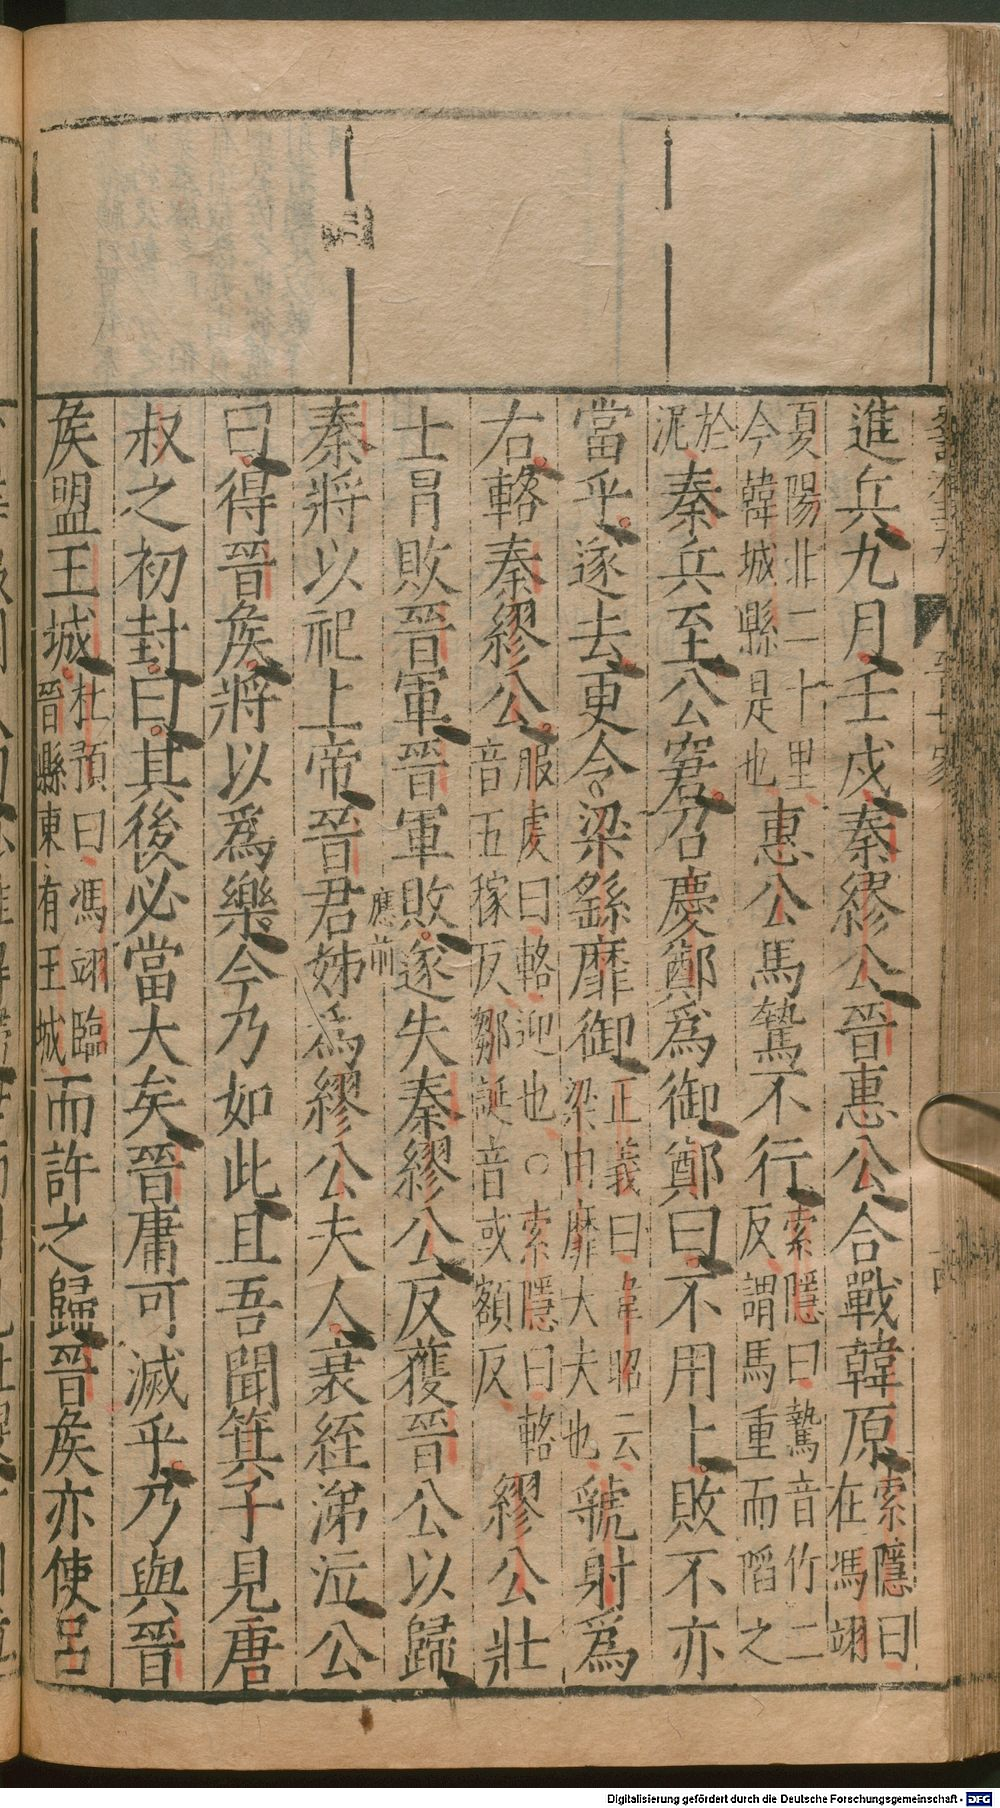 進兵九月壬戌秦繆公晉惠公合戰韓原索隱曰在馮翊
夏陽北二十里今韓城縣是也惠公馬騺不行索隱曰騺音竹二反謂馬重而䧟之
於泥秦兵至公窘召慶鄭爲御鄭曰不用卜敗不亦
當乎遂去更令梁繇靡御正義曰韋昭云梁由靡大夫也虢射爲
右輅秦繆公服虔曰輅迎也○索隱曰輅音五稼反鄒誕音或額反繆公壯
士冐敗晉軍晉軍敗遂失秦繆公反獲晉公以歸
應前
秦將以祀上帝晉君姊爲繆公夫人衰絰涕泣公
曰得晉矦將以爲樂今乃如此且吾聞箕子見唐
叔之初封曰其後必當大矣晉庸可滅乎乃與晉
矦盟王城杜預曰馮翊臨晉縣東有王城而許之歸晉矦亦使呂
晉世家
Digitalisierung gefördert durch die Deutsche Forschungsgemeinschaft - DFG